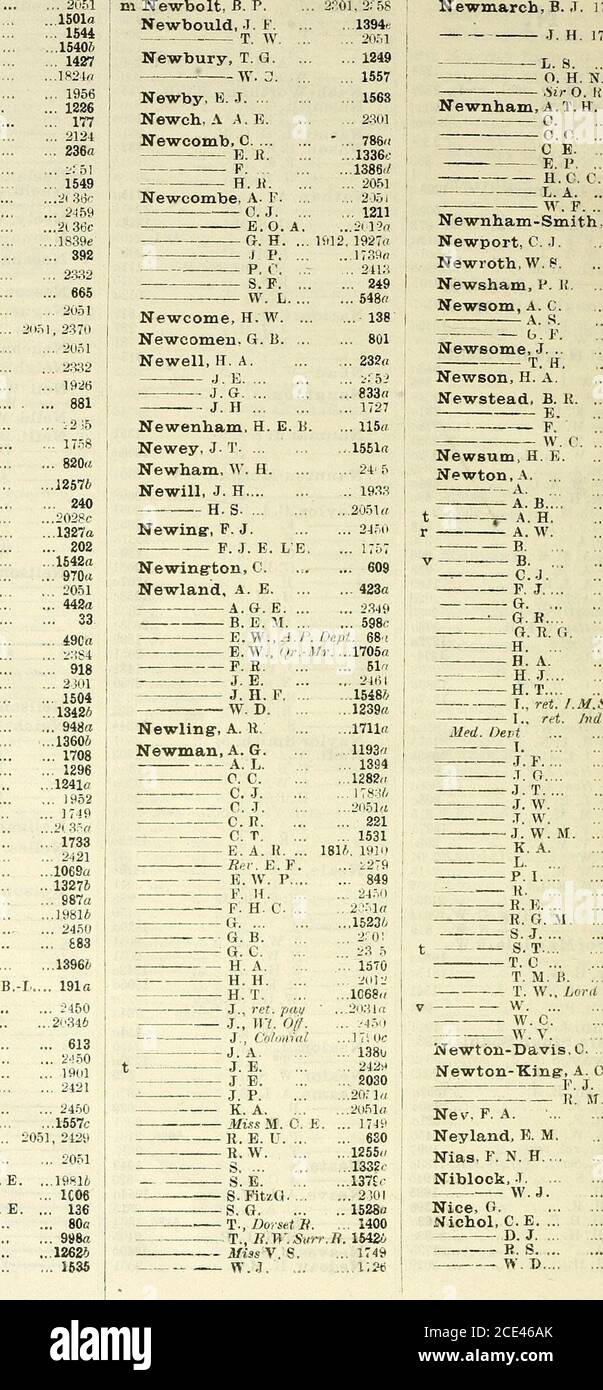 ... 2051
...1501a
... 1544
...1540b
... 1427
...1824a
... 1956
... 1226
... 177
... 2124
... 236a
... 1549
... 2459
...1839e
... 392
... 2332
... 665
... 2051
... 2051, 2370
... 2051
... 2332
... 1926
... 881
... 1758
... 820a
...1257b
... 240
...2028c
...1327a
... 202
...1542a
... 970a
... 2051
... 442a
... 33
... 490a
... 2384
... 918
... 2301
... 1504
...1342b
... 948a
...1360b
... 1708
... 1296
...1241a
... 1952
... 1749
... 1733
... 2421
...1069a
...1327b
... 987a
...1981b
... 2450
... 883
...1396b
B.-L.... 191a
... 2450
...2034b
... 613
... 2450
... 1901
... 2421
... 2450
...1557c
.. 2051, 2429
... 2051
E. ...1981b
... 1006
E. ... 136
... 80a
... 998a
...1262b
... 1535
m Newbolt, B. P. ... 2301, 2258
Newbould, J. F. ...1394e
——— T. W. ... 2051
Newbury, T. G. ... 1249
——— W. J. ... 1557
Newby, E. J. ... ... 1563
Newch, A. A. E. ... 2301
Newcomb, C. ... ... 786a
——— E. R. ...1336c
——— F. ...1386d
——— H. R. ... 2051
Newcombe, A. F. ... 2051
——— C. J. ... 1211
——— E. O. A. ...2012a
——— G. H. ... 1912, 1927a
——— J. P. ...1739a
——— P. C. ... 2413
——— S. F. ... 249
——— W. L. ... ... 548a
Newcome, H. W. ... 138
Newcomen, G. B. ... 801
Newell, H. A. ... 232a
——— J. E. ... ... 2252
——— J. G. ... ... 833a
——— J. H. ... ... 1727
Newenham, H. E. B. ... 115a
Newey, J. T. ... ...1551a
Newham, W. H. ...
Newill, J. H.... ... 1933
——— H. S. ... ...2051a
Newing, F. J. ... 2450
——— F. J. E. L'E. ... 1757
Newington, C. ... ... 609
Newland, A. E. ... 423a
——— A. G. E. ... ... 2349
——— B. E. M. ... ... 598c
——— E. W., A.P. Dept. 68a
——— E. W., Qr.-Mr. ...1705a
——— F. R. ... ... 51a
——— J. E. ... ... 2461
——— J. H. F. ... ...1548b
——— W. D. ...1239a
Newling, A. R. ...1711a
Newman, A. G. ...1193a
——— A. L. ... 1394
——— C. C. ...1282a
——— C. J. ...1783b
——— C. J. ...2051a
——— C. R. ... 221
——— C. T. ... 1531
——— E. A. R. ... 181b, 1910
——— Rev. E. F. ... 2279
——— E. W. P.... ... 849
——— F. H. ... 2450
——— F. H. C. ...2051a
——— G. ... ...1523b
——— G. B. ...
——— G. C. ...
——— H. A. ... 1570
——— H. H. ... 2012
——— H. T. ...1068a
——— J., ret. pay ...2031a
——— J., Wt. Off. ... 2450
——— J., Colonial
——— J. A. ... 138b
t ——— J. E. ... 2429
——— J. E. ... 2030
——— J. P.
——— K. A. ...2051a
——— Miss M. C. E. ... 1749
——— R. E. U. ... ... 630
——— R. W. ...1255a
——— S. ... ...1332c
——— S. E.
——— S. FitzG. ... ... 2301
——— S. G. ... ... 1528a
——— T., Dorset R. 1400
——— T., R.W. Surr. R. 1542b
——— Miss V. S. ... 1749
——— W. J. ... ... 1726
Newmarch, B. J. 1
——— J. H. 17
——— L. S. ..
——— O. H. N.
——— Sir O. R
Newnham, A. T. H.
——— C.
——— C. C.
——— C. E.
——— E. P.
——— H. C. C.
——— L. A. ..
——— W. F. ..
Newnham-Smith,
Newport, C. J.
Newroth, W. S.
Newsham, P. R.
Newsom, A. C.
——— A. S.
——— G. F.
Newsome, J. ..
——— T. H.
Newson, H. A.
Newstead, B. R. ..
——— E. ..
——— F.
——— W. C. ..
Newsum, H. E.
Newton, A. ...
——— A. ...
——— A. B....
t ——— A. H.
r ——— A. W.
——— B. ...
v ——— B. ...
——— C. J.
——— F. J. ...
——— G. ...
——— G. R....
——— G. R. G.
——— H. ...
——— H. A.
——— H. J....
——— H. T....
——— I., ret. I.M.S
——— I., ret. Ind
Med. Dept ...
——— I. ...
——— J. F....
——— J. G....
——— J. T....
——— J. W.
——— J. W.
——— J. W. M. ..
——— K. A. ..
——— L. ...
——— P. I....
——— R. ...
——— R. E.
——— R. G. M.
——— S. J. ...
t ——— S. T....
——— T. C ...
——— T. M. B. ..
——— T. W., Lord
v ——— W. ...
——— W. C. ..
——— W. V.
Newton-Davis, C. .
Newton-King, A. C
——— F. J.
——— R. M.
Nev, F. A. ...
Neyland, E. M. ..
Nias, F. N. H....
Niblock, J. ...
——— W. J. ..
Nice, G. ...
Nichol, C. E. ...
——— D. J. ...
——— R. S. ...
——— W. D....
a
alamy
alamy
Image ID: 2CE46AK
www.alamy.com